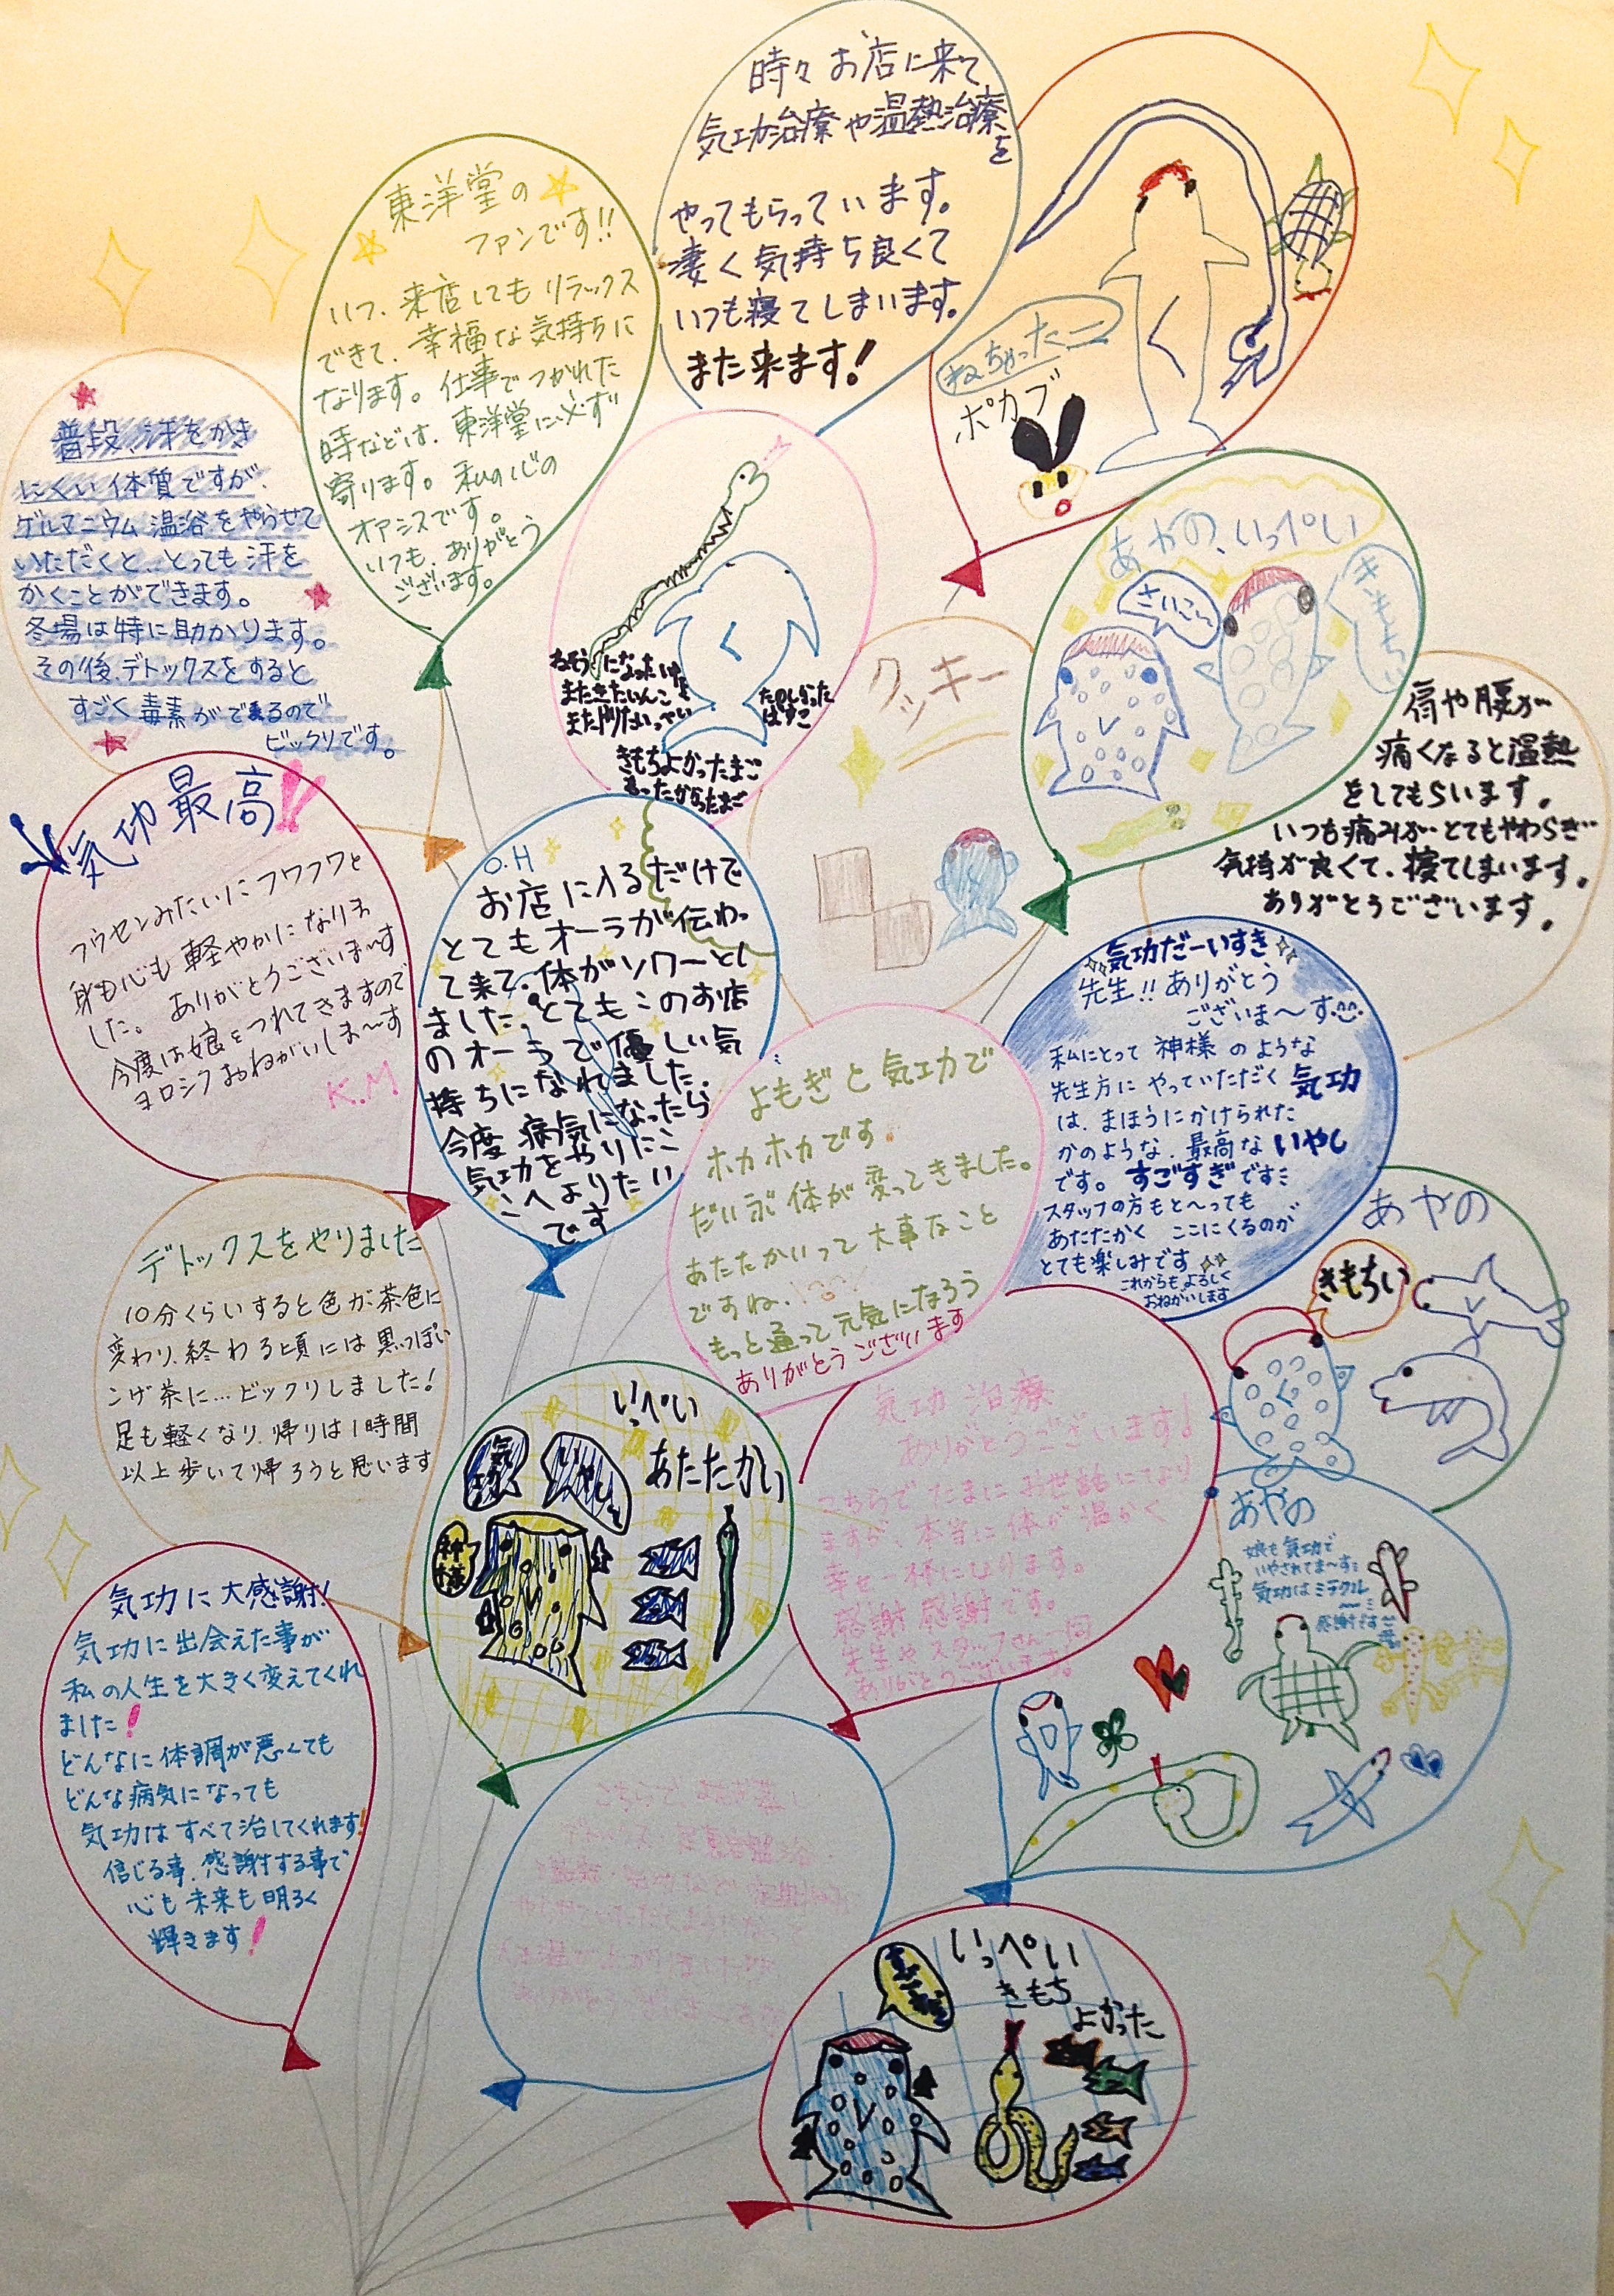 時々お店に来て
気功治療や温熱治療
を
やってもらっています。
凄く気持ち良くて
いつも寝てしまいます。
また来ます!
東洋堂の
ファンです!!
いつ、来店してもリラックス
できて、幸福な気持ちに
なります。仕事でつかれた
時などは、東洋堂に必ず
寄ります。私の心の
オアシスです。
いつも、ありがとう
ございます。
ねちゃったニ
ポカブ
普段、汗をかき
にくい体質ですが、
ゲルマニウム温浴をやらせて
いただくと…とっても汗を
かくことができます。
冬場は特に助かります。
その後、デトックスをすると
すごく毒素がでるので
ビックリです。
ねそうになったけど
またきたいんこ
また
たのしかった
はすこ
きもちよかったまご
あったかかったまご
クッキー
あやの、いっぺい
さいこ〜
きもちい
肩や腰が
痛くなると温熱
をしてもらいます。
いつも痛みがとてもやわらぎ
気持が良くて、寝てしまいます。
ありがとうございます。
気功最高!!
フウセンみたいにフワフワと
身も心も軽やかになりま
した。ありがとうございま〜す
今度は娘をつれてきますので
ヨロシクおねがいしま〜す
K.M
O.H
お店に入るだけで
とてもオーラが伝わっ
て来て、体がソワーとし
ました。とてもこのお店
のオーラで優しい気
持ちになれました.
今度病気になったら
気功をやりにこ
こへよりたい
です
気功だーいすき
先生!!ありがとう
ございま〜す
私にとって神様のような
先生方にやっていただく気功
は、まほうにかけられた
かのような、最高ないやし
です。すごすぎです
スタッフの方もと〜っても
あたたかく ここにくるのが
とても楽しみです
これからもよろしく
おねがいします
よもぎと気功で
ホカホカです
だいぶ体が変ってきました。
あたたかいって大事なこと
ですね.
もっと通って元気になろう
ありがとうございます
デトックスをやりました
10分くらいすると色が茶色に
変わり、終わる頃には黒っぽい
こげ茶に…ビックリしました!
足も軽くなり、帰りは1時間
以上歩いて帰ろうと思います
あやの
きもちい
いっぺい
気功
いやし
あたたかい
神様
気功治療
ありがとうございます!
こちらでたまにお世話になり
ますが、本当に体が温かく
幸せ一体になります。
感謝感謝です。
先生やスタッフさん一同
ありがとうございます。
あやの
娘も気功で
いやされてま〜す
気功はミラクル
感謝です
気功に大感謝!
気功に出会えた事が
私の人生を大きく変えてくれ
ました!
どんなに体調が悪くても
どんな病気になっても
気功はすべて治してくれます!
信じる事、感謝する事で
心も未来も明るく
輝きます!
いっぺい
きもち
よかった